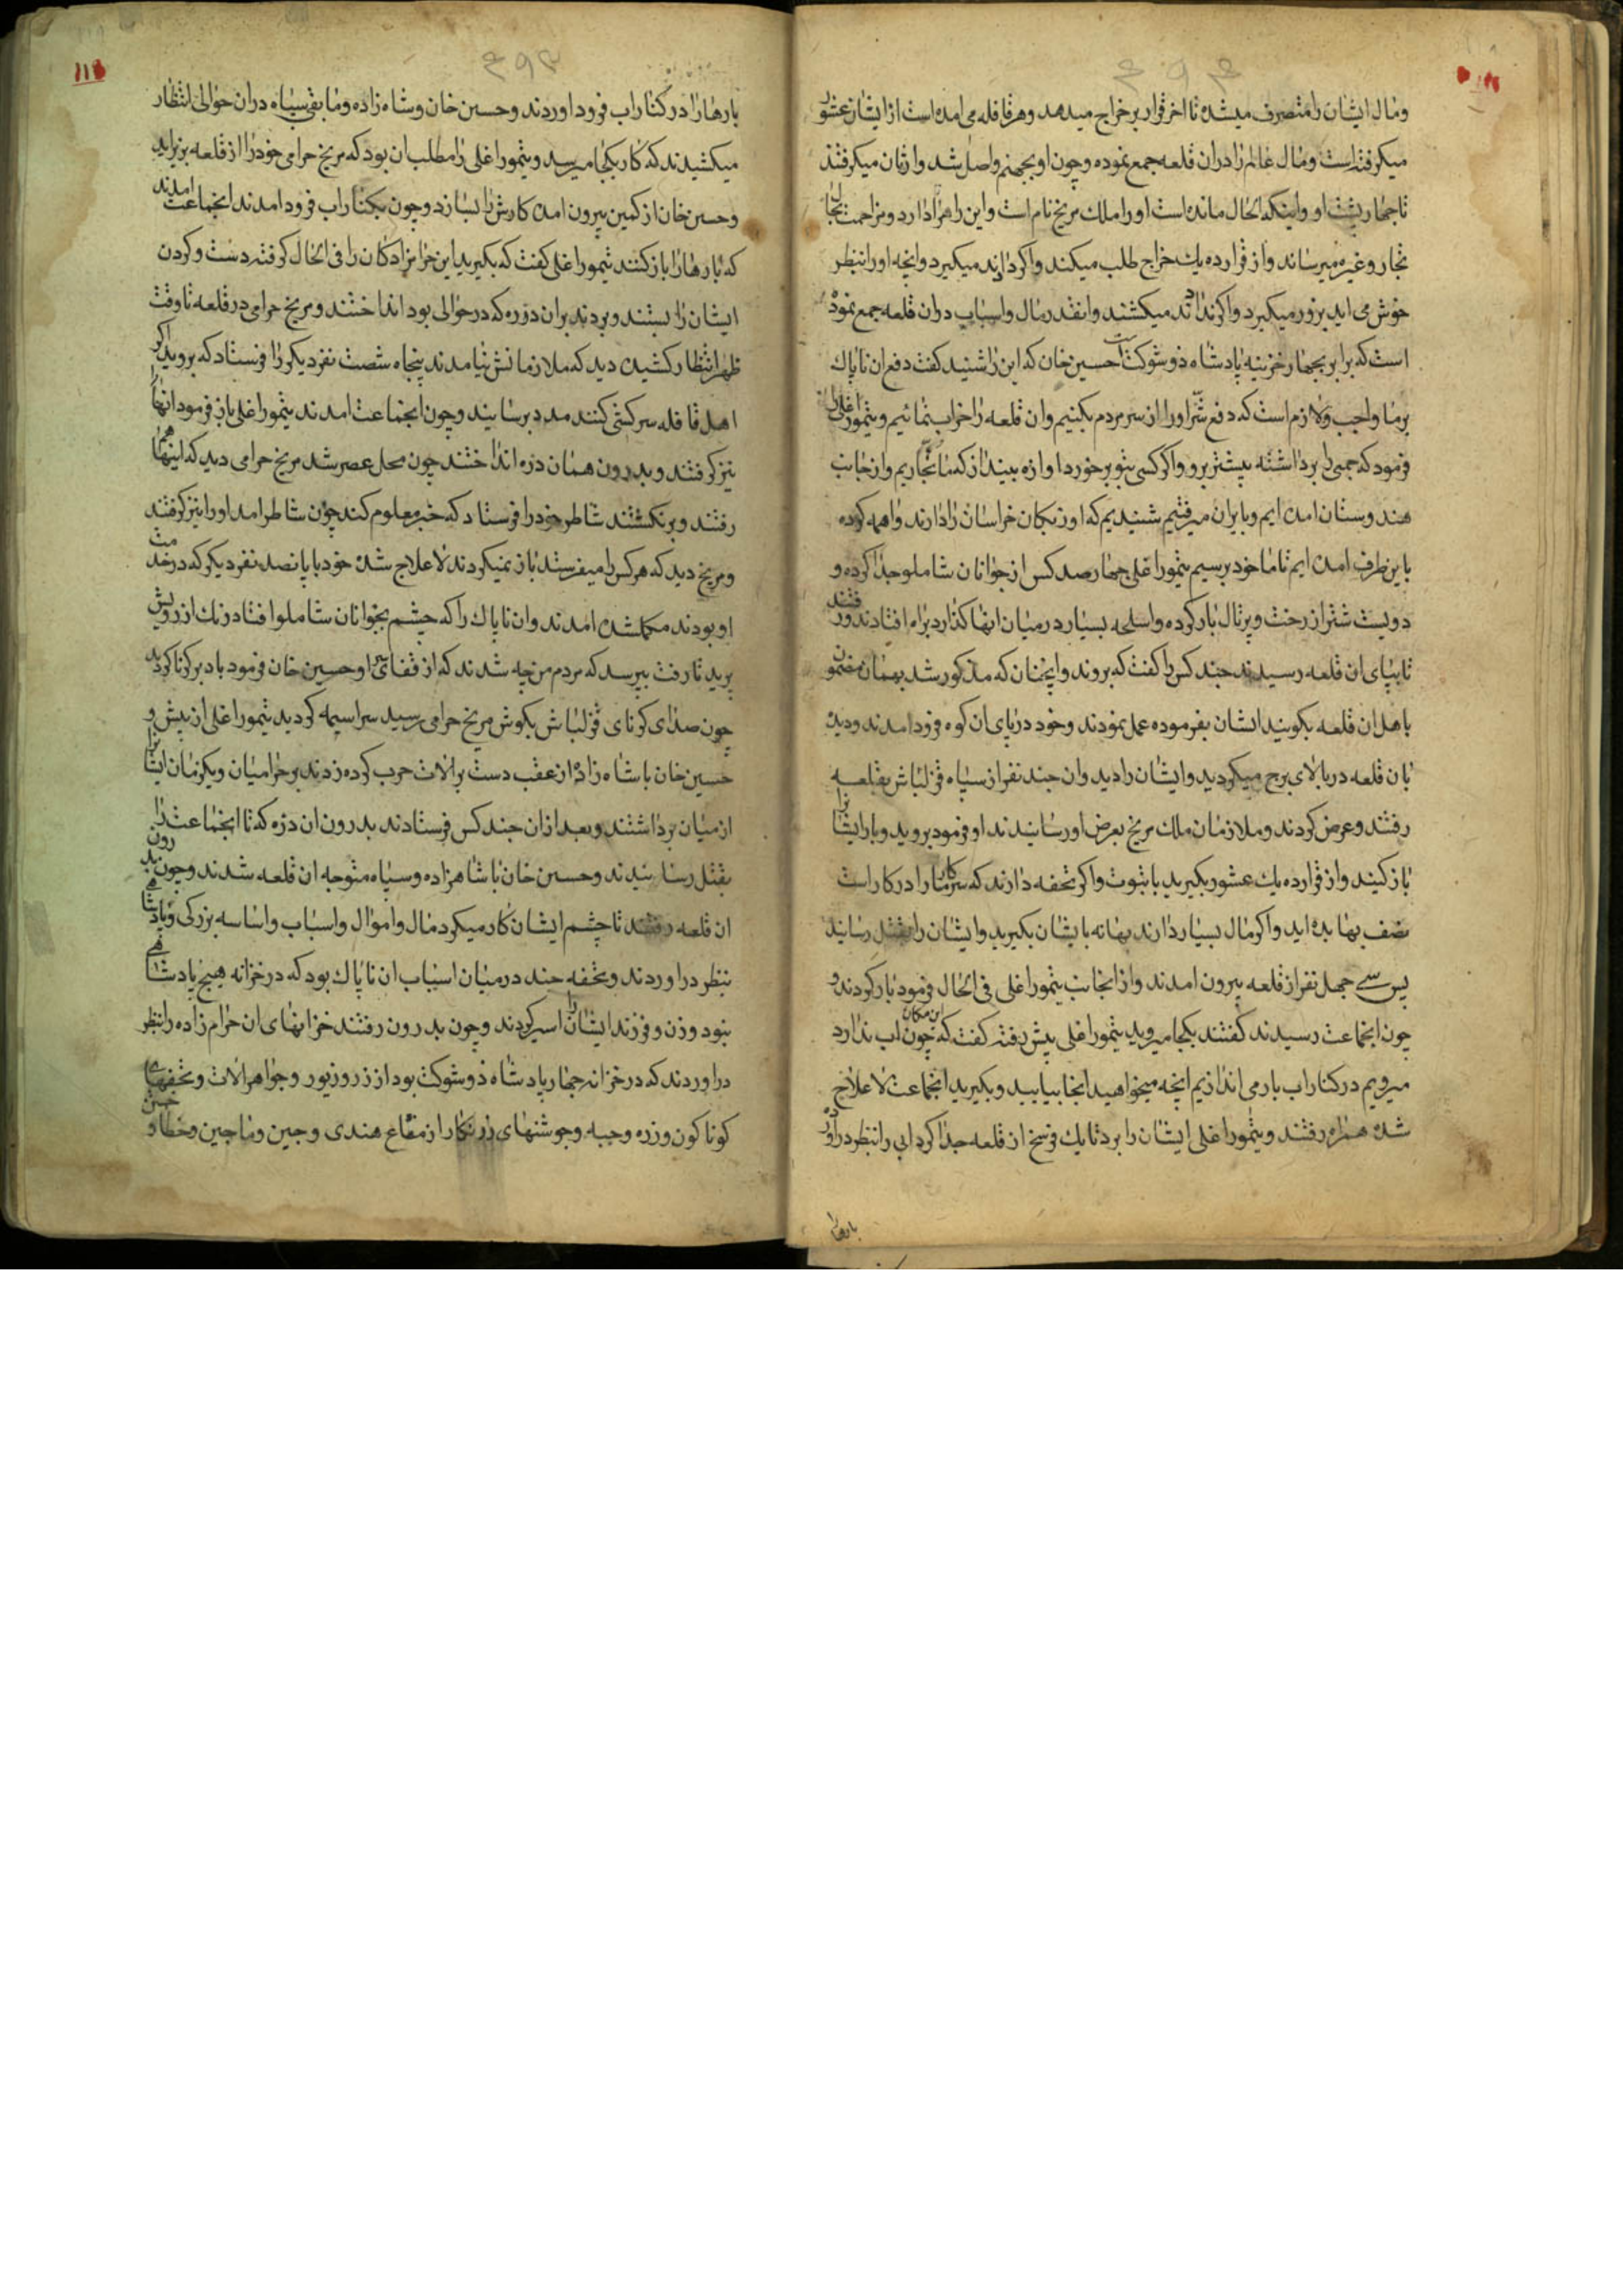 ومال ایشان را متصرف میشده تا اخر قرار بر خراج میدهد وهر قافله می امده است از ایشان عشور
میکرفته است ومال عالم را دران قلعه جمع نموده وچون او بجهنم واصل شد وارثان میکرفتند
تا چهار پشت او واینکه الحال مانده است اورا ملک مریخ نام است واین راه را دارد ومزاحمت بحال
تجار وغیره میرساند واز قرار ده یک خراج طلب میکند واکر دادند میکیرد وانچه اورا بنظر
خوش می اید بزور میکیرد واکر ندادند میکشند وانقدر مال واسباب دران قلعه جمع نموده
است که برابر بچهار خزینه پادشاه ذو شوکت است حسین خان که این را شنید کفت دفع ان ناپاک
برما واجب ولازم است که دفع شر اورا از سر مردم بکنیم وان قلعه را خراب نمائیم وتیمور اغلی را
فرمود که جمعی را برداشته پیشتر برو واکر کسی بتو برخورد اوازه بینداز که ما تجاریم واز جانب
هندوستان امده ایم وبایران میرفتیم شنیدیم که اوزبکان خراسان را دارند واهمه کرده
باین طرف امده ایم تا ما خود برسیم تیمور اغلی چهار صد کس از جوانان شاملو جدا کرده و
دویست شتر از رخت وپرتال بار کرده واسلحه بسیار در میان انها کذارد براه افتادند ورفتند
تا بپای ان قلعه رسیدند چند کس را کفت که بروند وانچنان که مذکور شد بهمان مضمون
باهل ان قلعه بکویند ایشان بفرموده عمل نمودند وخود در پای ان کوه فرود امدند ودیده
بان قلعه در بالای برج میکردید وایشان را دید وان چند نفر از سپاه قزلباش بقلعه
رفتند وعرض کردند وملازمان ملک مریخ بعرض او رسانیدند او فرمود بروید وبار ایشانرا
باز کنید واز قرار ده یک عشور بکیرید واکر تحفه دارند که سرکار ما را در کار است
نصف بها بده اید واکر مال بسیار دارند بهانه بایشان بکیرید وایشان را بقتل رسانید
پس سی چهل نفر از قلعه بیرون امدند واز انجانب تیمور اغلی فی الحال فرمود بار کردند و
چون انجماعت رسیدند کفتند بکجا میروید تیمور اغلی پیش رفته کفت که چون این مکان اب ندارد
میرویم در کنار اب بار می اندازیم انچه میخواهید انجا بیایید وبکیرید انجماعت لاعلاج
شده همراه رفتند وتیمور اغلی ایشان را برد تا یک فرسخ از قلعه جدا کرد ابی را بنظر در اورد
بارها را
بارها را در کنار اب فرود اوردند وحسین خان وشاه زاده ومابقی سپاه دران حوالی انتظار
میکشیدند که کار بکجا میرسد وتیمور اغلی را مطلب ان بود که مریخ حرامی خود را از قلعه بزیر اید
وحسین خان از کمین بیرون امده کارش را بسازد وچون بکنار اب فرود امدند انجماعت امدند
که بارها را باز کنند تیمور اغلی کفت که بکیرید این حرامزادکان را فی الحال کرفته دست وکردن
ایشان را بستند وبردند بران دره که در حوالی بود انداختند ومریخ حرامی در قلعه تا وقت
ظهر انتظار کشیده دید که ملازمانش نیامدند پنجاه شصت نفر دیکر را فرستاد که بروید اکر
اهل قافله سرکشی کنند مدد برسانید وچون انجماعت امدند تیمور اغلی باز فرمود انها را
نیز کرفتند وبدرون همان دره انداختند چون محل عصر شد مریخ حرامی دید که اینها هم
رفتند وبرنکشتند شاطر خود را فرستاد که خبر معلوم کند چون شاطر امد اورا نیز کرفتند
ومریخ دید که هر کس را میفرستد باز نمیکردند لاعلاج شده خود با پانصد نفر دیکر که در خدمت
او بودند مکمل شده امدند وان ناپاک را که چشم بجوانان شاملو افتاد رنک از رویش
پرید تا رفت بپرسد که مردم من چه شدند که از قفای او حسین خان فرمود باد بر کرنا کردند
چون صدای کرنای قزلباش بکوش مریخ حرامی رسید سراسیمه کردید تیمور اغلی از پیش و
حسین خان با شاه زاده از عقب دست بر الات حرب کرده زدند بر حرامیان وبکزمان ایشانرا
از میان برداشتند وبعد ازان چند کس فرستادند بدرون ان دره که تا انجماعت را
بقتل رسانیدند وحسین خان با شاهزاده وسپاه متوجه ان قلعه شدند وچون بدرون
ان قلعه رفتند تا چشم ایشان کار میکرد مال واموال واسباب واساسه بزرکی وپادشاهی
بنظر در اوردند وتحفه چند در میان اسباب ان ناپاک بود که در خزانه هیچ پادشاهی
نبود وزن وفرزند ایشان را اسیر کردند وچون بدرون رفتند خزانهای ان حرام زاده را بنظر
در اوردند که در خزانه چهار پادشاه ذو شوکت بود از زر وزیور وجواهر الات وتحفهای
کوناکون وزره وجبه وجوشنهای زرنکار از متاع هندی وچین وماچین وختا و ختن